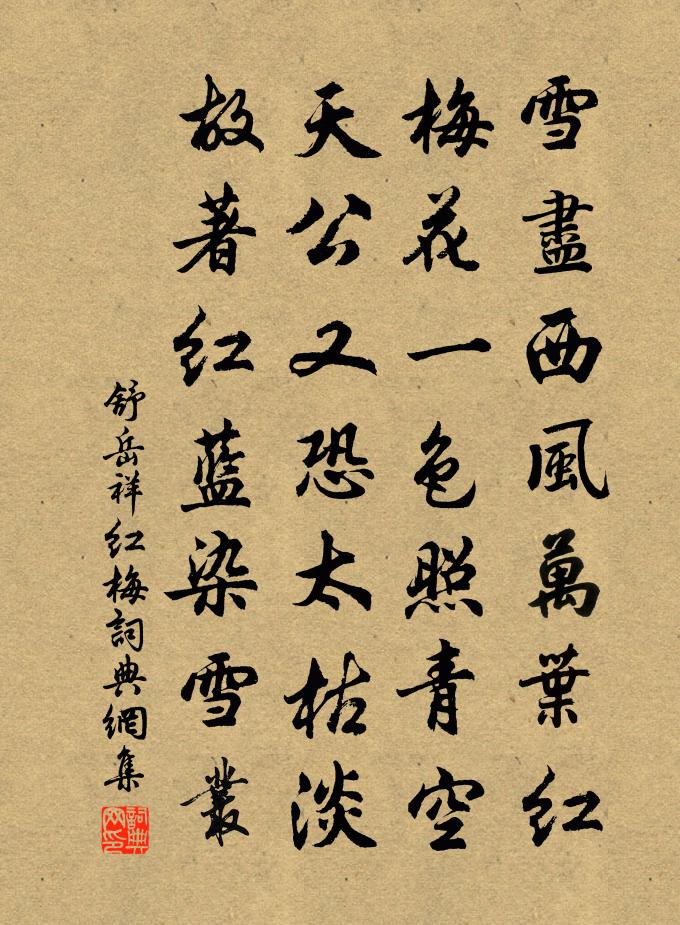 雪盡西風萬葉紅
梅花一色照青空
天公又恐太枯淡
故著红藍染雪叢
舒岳祥红梅詞典網集
詞典网印